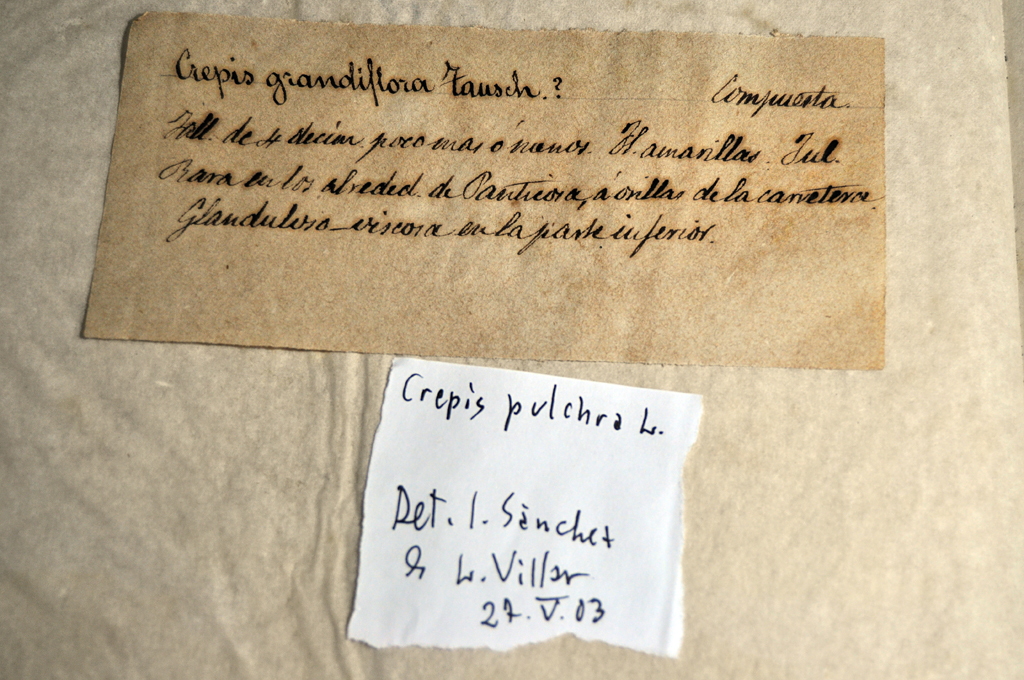 Crepis grandiflora Tausch.? Compuesta.
Tall. de 4 decím. poco mas ó menos. Fl. amarillas. Jul.
Rara en los alreded. de Panticosa, á orillas de la carretera.
Glanduloso-viscosa en la parte inferior.
Crepis pulchra L.
Det. I. Sànchez
& L. Villar
27.V.03